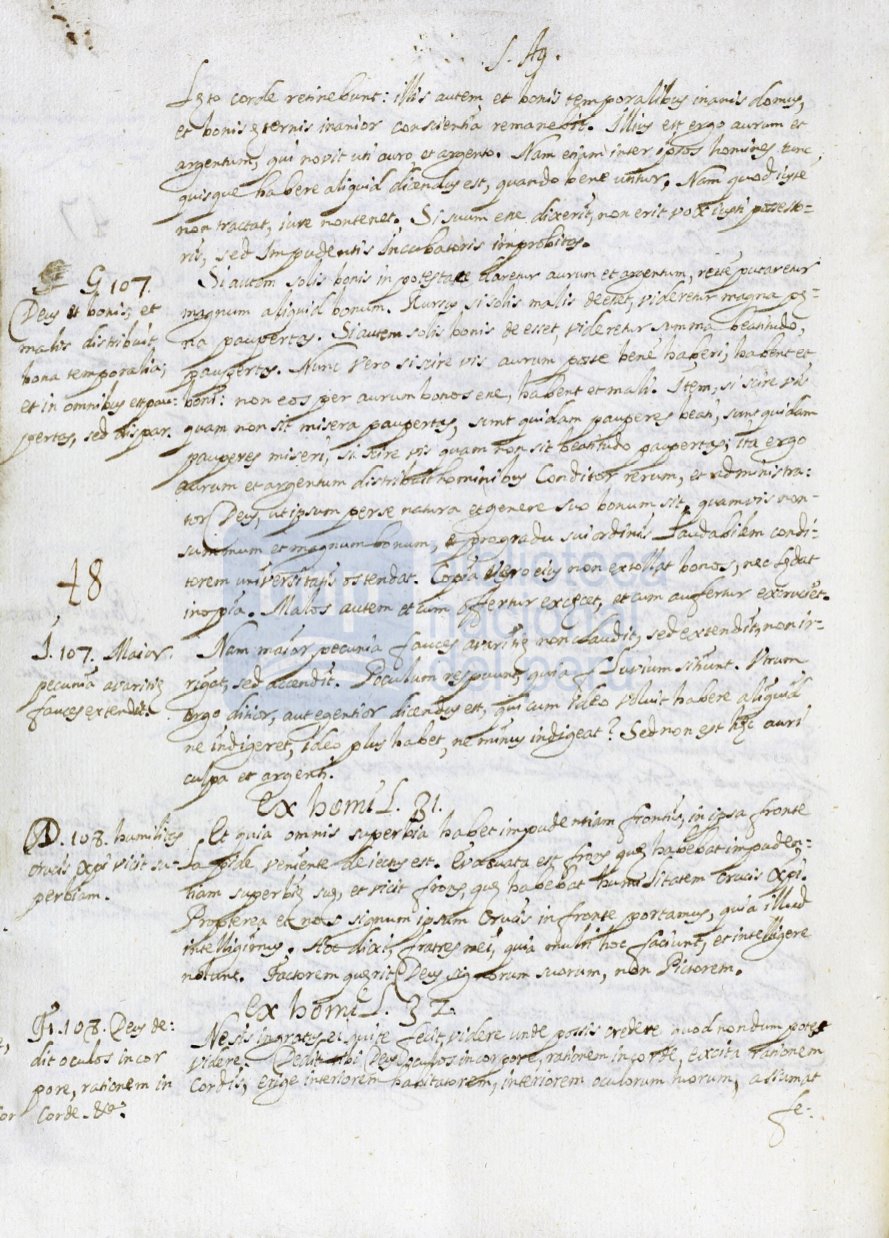 S. Ag.
Lęto corde retinebunt: illis autem et bonis temporalibus inanis domus,
et bonis ęternis inanior conscientia remanebit. Illius est ergo aurum et
argentum, qui novit uti auro, et argento. Nam etiam inter ipsos homines tunc
quisque habere aliquid dicendus est, quando bene utitur. Nam quod iuste
non tractat, iure non tenet. Si suum esse dixerit, non erit vox iusti possesso-
ris, sed Impudentis Incubatoris improbitas.
G 107.
Deus et bonis, et
malis distribuit
bona temporalia,
et in omnibus est pau-
pertas, sed dispar.
Si autem solis bonis in potestate daretur aurum et argentum, recte putaretur
magnum aliquid bonum. Rursus si solis malis deesset, videretur magna pę-
na paupertas. Si autem solis bonis deesset, videretur summa beatitudo,
paupertas. Nunc vero si scire vis aurum posse bene haberi, habent et
boni: non eos per aurum bonos esse, habent et mali. Item, si scire vis
quam non sit misera paupertas, sunt quidam pauperes beati, sunt quidam
pauperes miseri, si scire vis quam non sit beatitudo paupertas, ita ergo
aurum et argentum distribuit hominibus Conditor rerum, et administra-
tor Deus, ut ipsum per se natura et genere suo bonum sit, quamvis non
summum et magnum bonum, pro gradu sui ordinis Laudabilem condi-
torem universitatis ostendat. Copia vero eius non extollat bonos, nec lędat
inopia. Malos autem et cum offertur excęcet, et cum aufertur excruciet.
48
I. 107. Maior
pecunia avaritię
fauces extendit.
Nam maior pecunia fauces avaritię non claudit, sed extendit, non ir-
rigat, sed accendit. Poculum respuunt, quia fluvium sitiunt. Utrum
ergo ditior, aut egentior dicendus est, qui cum ideo voluit habere aliquid
ne indigeret, ideo plus habet, ne minus indigeat? Sed non est hęc auri
culpa et argenti.
Ex homil. 31.
D. 108. humilitas
crucis xpi vicit su-
perbiam.
Et quia omnis superbia habet impudentiam frontis, in ipsa fronte
lapide veniente deiectus est. Evacuata est frons quę habebat impuden-
tiam superbię suę, et vicit frons, quę habebat humilitatem Crucis Xpi.
Propterea et nos signum ipsum Crucis in fronte portamus, quia illud
intelligimus. Hoc dixi, fratres mei, quia multi hoc faciunt, et intelligere
nolunt. Factorem quęrit Deus signorum suorum, non Pictorem.
Ex homil. 32.
108. Deus de-
dit oculos in cor
pore, rationem in
Corde &a.
Ne sis ingratus ei qui te fecit videre unde possis credere quod nondum potest
videre. Dedit tibi Deus oculos in corpore, rationem in corde, excita rationem
Cordis, erige interiorem habitatorem, interiorem oculorum tuorum, assumat
fe-
biblioteca
nacional
del perú